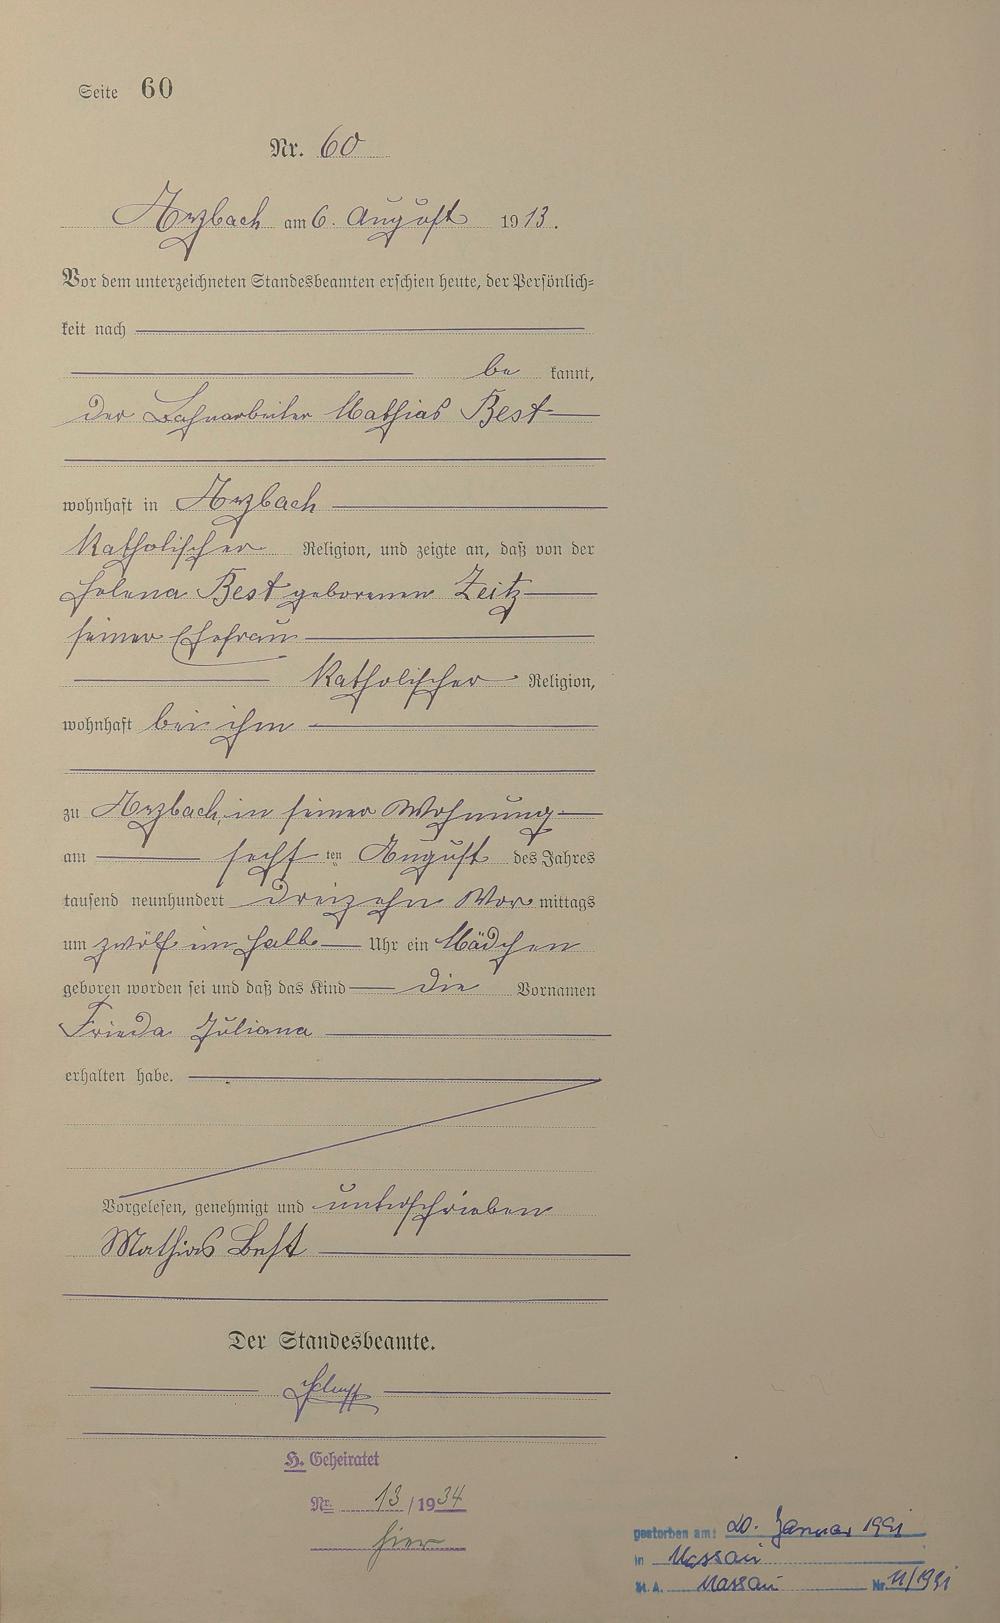 Seite 60
Nr. 60
Arzbach am 6. August 1913.
Vor dem unterzeichneten Standesbeamten erschien heute, der Persönlich=
keit nach
be kannt,
der Bahnarbeiter Mathias Best
wohnhaft in Arzbach
Katholischer Religion, und zeigte an, daß von der
Helena Best geborenen Zeitz
seiner Ehefrau
Katholischer Religion,
wohnhaft bei ihm
zu Arzbach, in seiner Wohnung
am sechsten August des Jahres
tausend neunhundert dreizehn Vor mittags
um zwölf ein halb Uhr ein Mädchen
geboren worden sei und daß das Kind die Vornamen
Frieda Juliana
erhalten habe.
Vorgelesen, genehmigt und unterschrieben
Mathias Best
Der Standesbeamte.
H. Geheiratet
Nr. 13/1934
hier
gestorben am: 20. Januar 1991
in Nassau
St. A. Nassau Nr. 11/1991